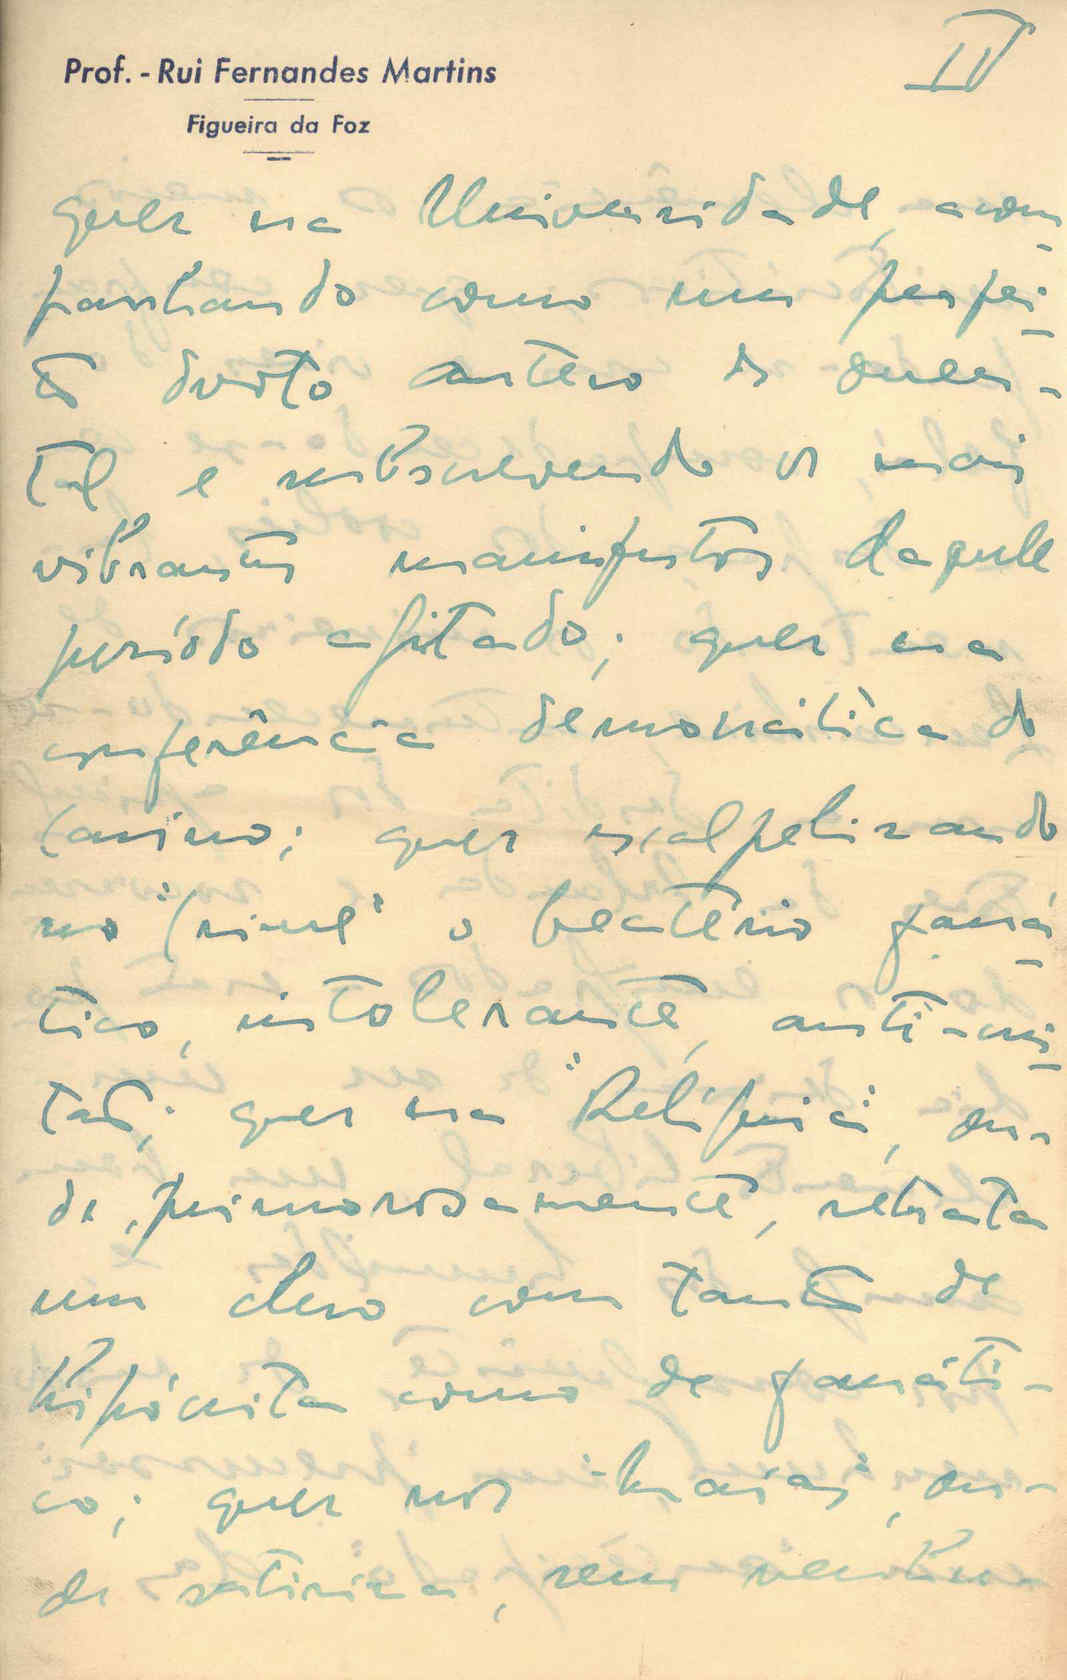 Prof. - Rui Fernandes Martins
Figueira da Foz
IV
quer na Universidade, acom-
panhando como um perfei-
to devoto Antero de Quen-
tal e subscrevendo os mais
vibrantes manifestos daquele
período agitado; quer na
conferência democrática do
Casino; quer escalpelizando
no "Crime" o beatério faná-
tico, intolerante, anti-cris-
tão; quer na "Relíquia", on-
de, primorosamente, retrata
um clero com tanto de
hipócrita como de fanáti-
co; quer nos "Maias", on-
de satiriza, sem